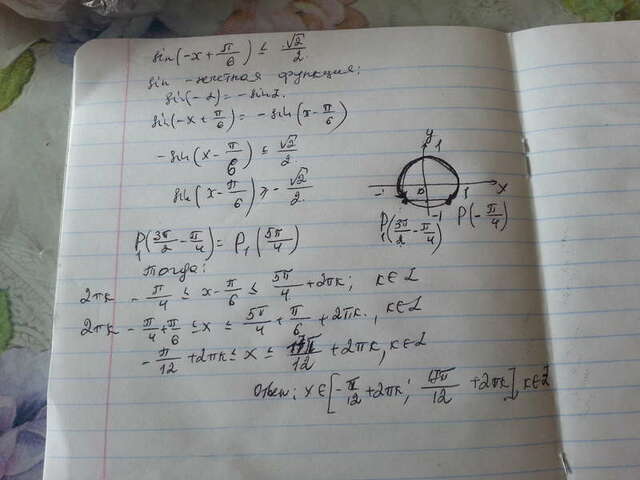 sin(-x + π/6) ≤ √2/2.
sin - нечетная функция:
sin(-α) = -sinα.
sin(-x + π/6) = -sin(x - π/6)
-sin(x - π/6) ≤ √2/2.
sin(x - π/6) ≥ -√2/2.
y
1
0
1
x
-1
P₁(3π/2 - π/4)
P(-π/4)
P₁(3π/2 - π/4) = P₁(5π/4)
тогда:
2πk - π/4 ≤ x - π/6 ≤ 5π/4 + 2πk; k∈Z
2πk - π/4 + π/6 ≤ x ≤ 5π/4 + π/6 + 2πk, k∈Z
-π/12 + 2πk ≤ x ≤ 17π/12 + 2πk, k∈Z
Ответ: x∈[-π/12 + 2πk; 17π/12 + 2πk], k∈Z